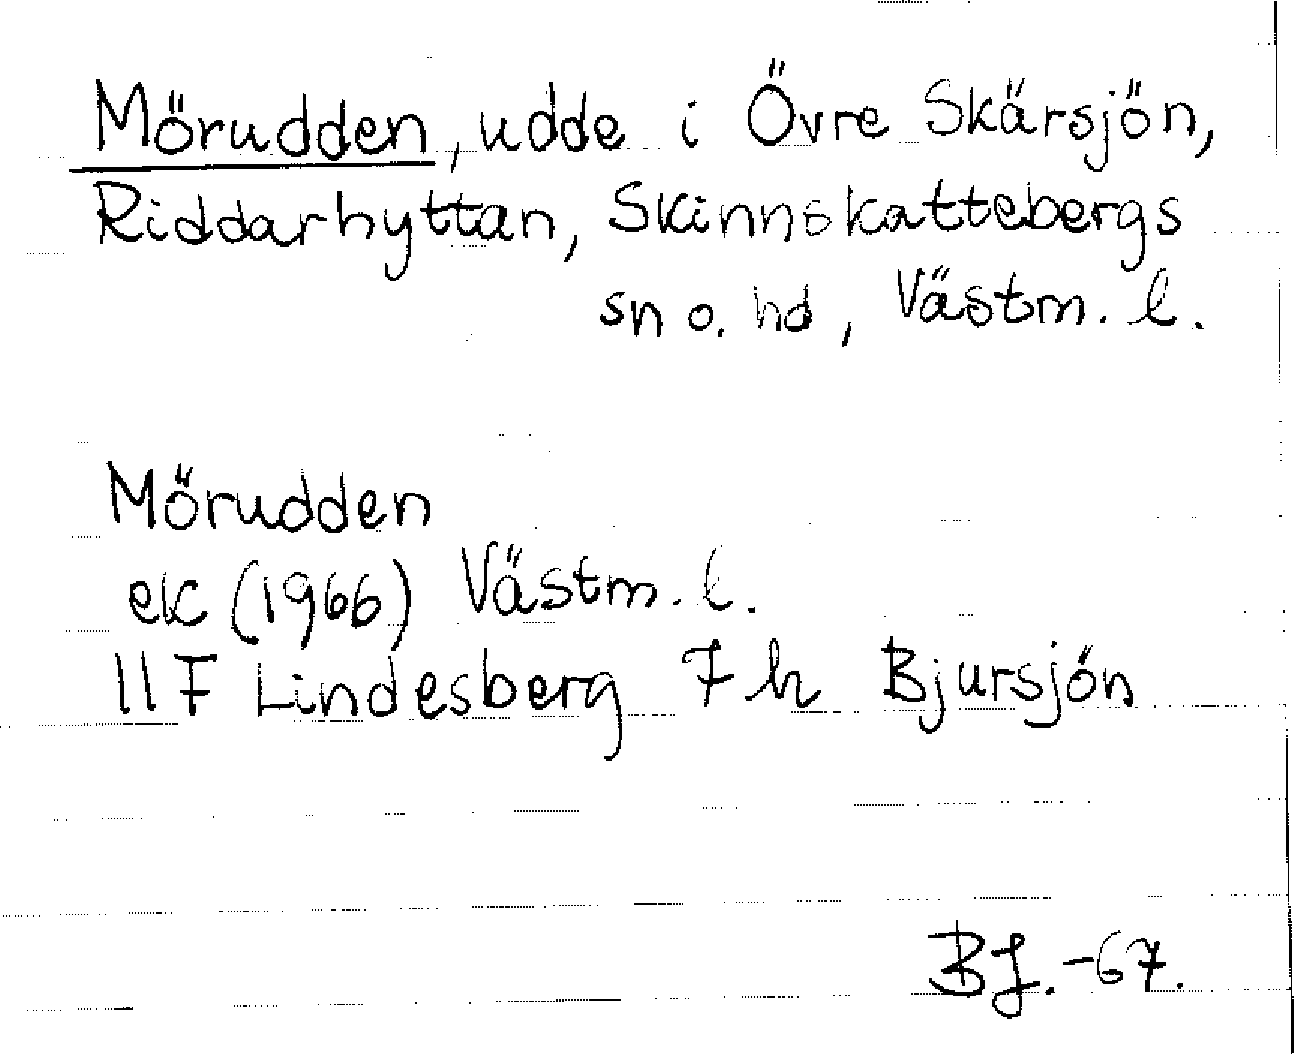 Mörudden, udde i Övre Skärsjön,
Riddarhyttan, Skinnskattebergs
sn o. hd, Västm. l.
Mörudden
ek (1966) Västm. l.
11F Lindesberg 7h Bjursjön
BJ. -67.